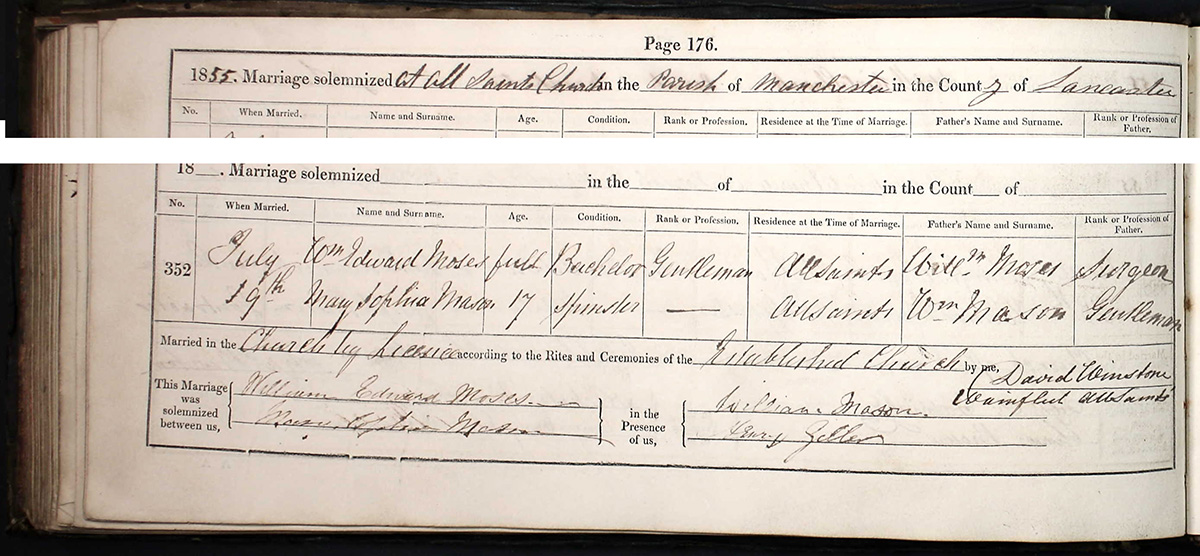 Page 176.
1855. Marriage solemnized at All Saints Church in the Parish of Manchester in the County of Lancaster
No. When Married. Name and Surname. Age. Condition. Rank or Profession. Residence at the Time of Marriage. Father's Name and Surname. Rank or Profession of Father.
18__. Marriage solemnized in the of in the Count of
No. When Married. Name and Surname. Age. Condition. Rank or Profession. Residence at the Time of Marriage. Father's Name and Surname. Rank or Profession of Father.
352 July Wm Edward Moses full Bachelor Gentleman All Saints Willm Moses Surgeon
19th Mary Sophia Mason 17 Spinster — All Saints Wm Mason Gentleman
Married in the Church by Licence according to the Rites and Ceremonies of the Established Church by me,
David Winstone
Wainfleet All Saints
This Marriage was solemnized between us,
William Edward Moses
Mary Sophia Mason
in the Presence of us,
William Mason.
Henry